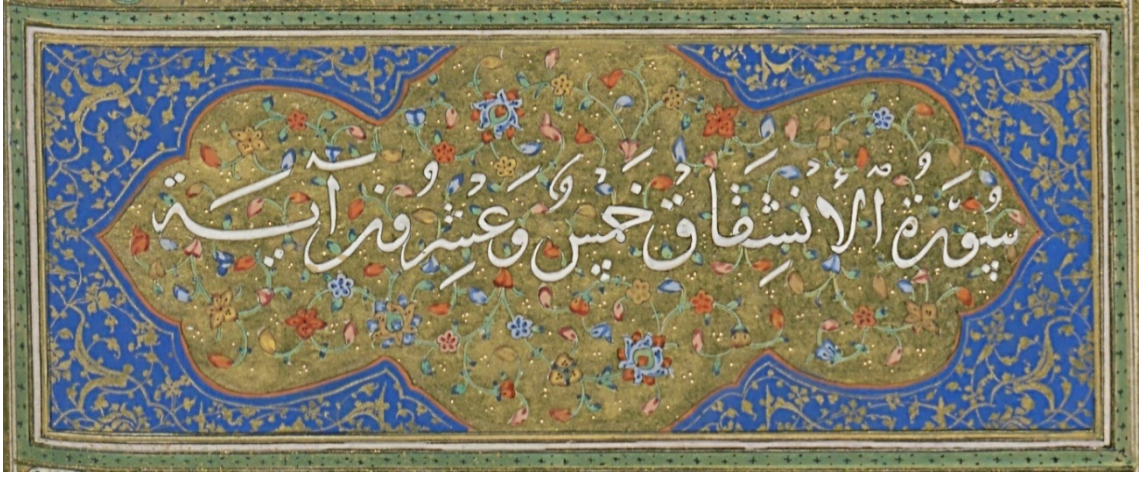 سُورَةُ ٱلْإِنْشِقَاقْ خَمْسٌ وَعِشْرُونَ آيَة